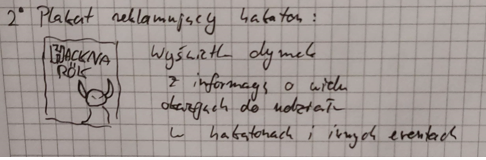 2° Plakat reklamujący hakaton:
HACKNA
ROK
Wyświetl dymek
z informacją o wielu
okazjach do udziału
w hakatonach i innych eventach